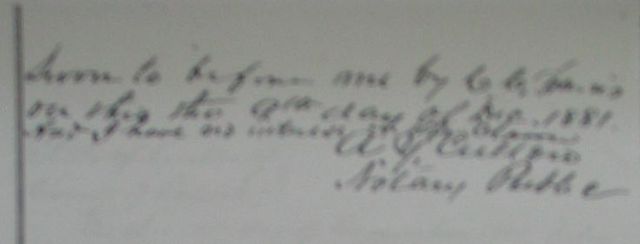 Sworn to before me by C C
on this the 9th day of Dec. 1881.
And I have no interest in
A J
Notary Public